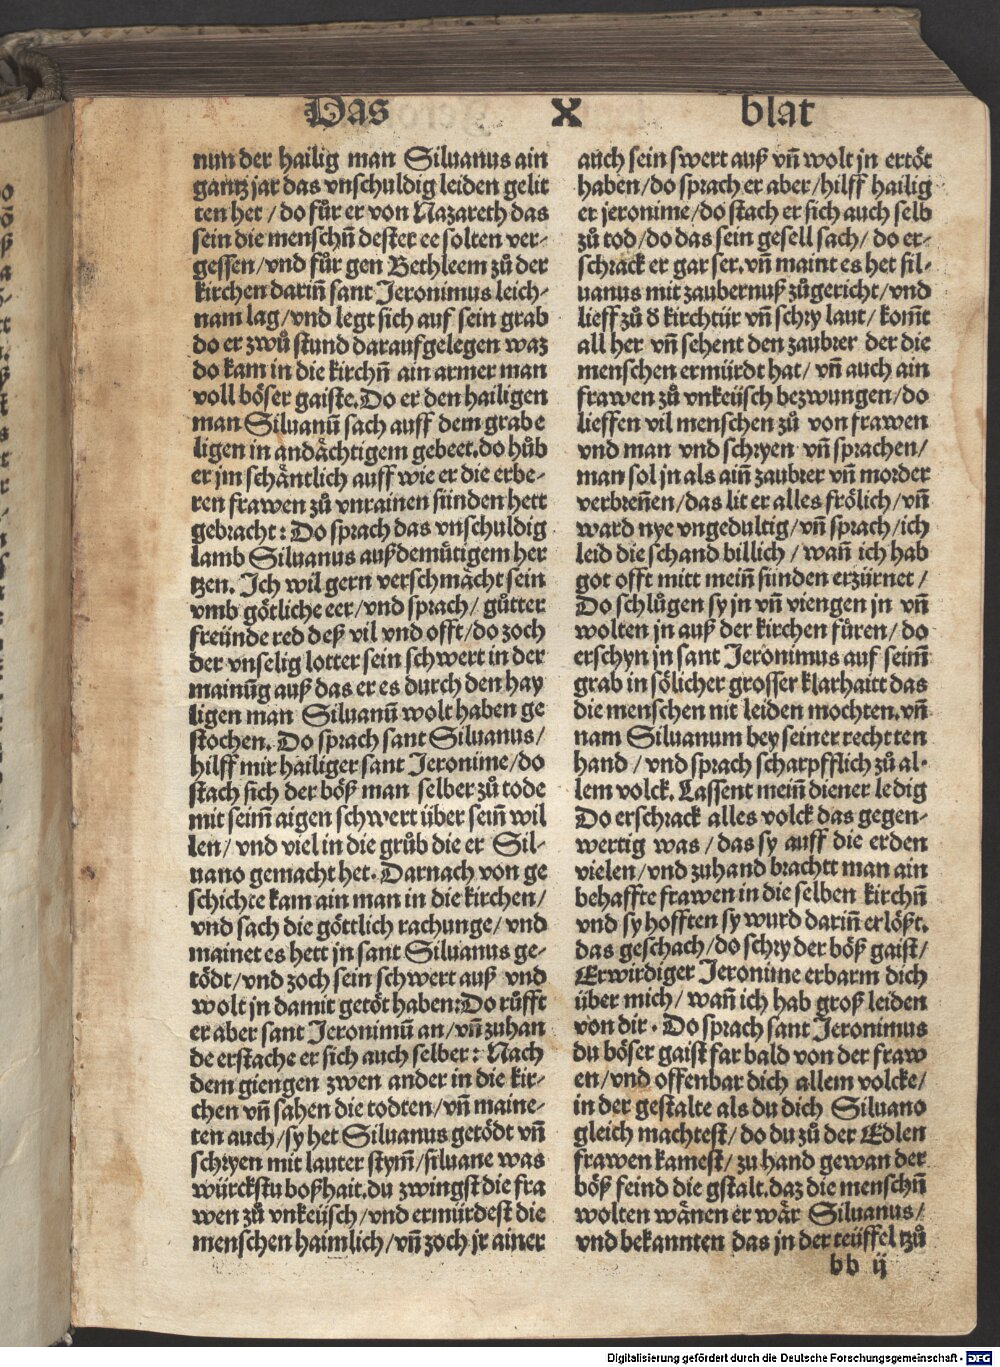 Das X blat
nun der hailig man Siluanus ain
gantz jar das vnschuldig leiden gelit
ten het / do fůr er von Nazareth das
sein die menschñ dester ee solten ver⸗
gessen / vnd fůr gen Bethleem zů der
kirchen dariñ sant Jeronimus leich⸗
nam lag / vnd legt sich auf sein grab
do er zwů stund darauf gelegen waz
do kam in die kirchñ ain armer man
voll böser gaiste. Do er den hailigen
man Siluanũ sach auff dem grabe
ligen in andächtigem gebeet. do hůb
er jm schäntlich auff wie er die erbe⸗
ren frawen zů vnrainen sünden hett
gebracht : Do sprach das vnschuldig
lamb Siluanus auß demůtigem her
tzen. Ich wil gern verschmächt sein
vmb götliche eer / vnd sprach / gůtter
freünde red deß vil vnd offt / do zoch
der vnselig lotter sein schwert in der
mainũg auß das er es durch den hay
ligen man Siluanũ wolt haben ge
stochen. Do sprach sant Siluanus /
hilff mir hailiger sant Jeronime / do
stach sich der böß man selber zů tode
mit seim̃ aigen schwert über sein̄ wil
len / vnd viel in die grůb die er Sil⸗
uano gemacht het. Darnach von ge
schichte kam ain man in die kirchen /
vnd sach die göttlich rachunge / vnd
mainet es hett jn sant Siluanus ge⸗
tödt / vnd zoch sein schwert auß vnd
wolt jn damit getöt haben: Do růfft
er aber sant Jeronimũ an / vñ zuhan
de erstache er sich auch selber : Nach
dem giengen zwen ander in die kir⸗
chen vñ sahen die todten / vñ maine⸗
ten auch / sy het Siluanus getödt vñ
schryen mit lauter stym̃ / siluane was
würckstu boßhait. du zwingst die fra
wen zů vnkeüsch / vnd ermürdest die
menschen haimlich / vñ zoch jr ainer
auch sein swert auß vñ wolt jn ertöt
haben / do sprach er aber / hilff hailig
er jeronime / do stach er sich auch selb
zů tod / do das sein gesell sach / do er⸗
schrack er gar ser. vñ maint es het sil⸗
uanus mit zaubernuß zůgericht / vnd
lieff zů ð kirchtür vñ schry laut / kom̃t
all her vñ sehent den zaubrer der die
menschen ermürdt hat / vñ auch ain
frawen zů vnkeüsch bezwungen / do
lieffen vil menschen zů von frawen
vnd man vnd schryen vñ sprachen /
man sol jn als aiñ zaubrer vñ morder
verbreñen / das lit er alles frölich / vñ
ward nye vngedultig / vñ sprach / ich
leid die schand billich / wañ ich hab
got offt mitt meiñ sünden erzürnet /
Do schlůgen sy jn vñ viengen jn vñ
wolten jn auß der kirchen fůren / do
erschyn jn sant Jeronimus auf seim̃
grab in sölicher grosser klarhaitt das
die menschen nit leiden mochten. vñ
nam Siluanum bey seiner rechtten
hand / vnd sprach scharpfflich zů al⸗
lem volck. Lassent meiñ diener ledig
Do erschrack alles volck das gegen⸗
wertig was / das sy auff die erden
vielen / vnd zuhand brachtt man ain
behaffte frawen in die selben kirchñ
vnd sy hofften sy wurd dariñ erlößt.
das geschach / do schry der böß gaist /
Erwirdiger Jeronime erbarm dich
über mich / wañ ich hab groß leiden
von dir. Do sprach sant Jeronimus
du böser gaist far bald von der fraw
en / vnd offenbar dich allem volcke /
in der gestalte als du dich Siluano
gleich machtest / do du zů der Edlen
frawen kamest / zu hand gewan der
böß feind die gstalt. daz die menschñ
wolten wänen er wär Siluanus /
vnd bekannten das jn der teüffel tzů
bb ij
Digitalisierung gefördert durch die Deutsche Forschungsgemeinschaft - DFG